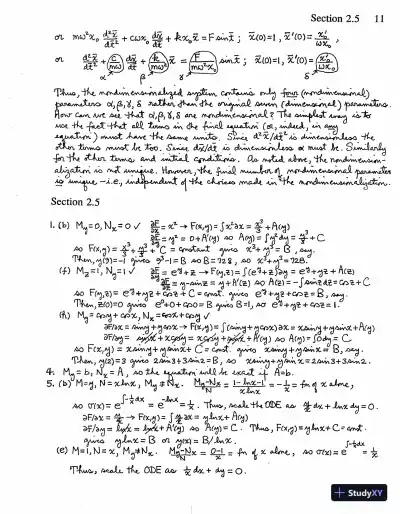 Section 2.5 11
or mω²x₀ d²x̄/dt̄² + cωx₀ dx̄/dt̄ + kx₀x̄ = F sin t̄ ; x̄(0)=1, x̄'(0)= x₀'/ωx₀,
or d²x̄/dt̄² + (c/mω) dx̄/dt̄ + (k/mω²) x̄ = (F/mω²x₀) sin t̄ ; x̄(0)=1, x̄'(0)= (x₀'/ωx₀)
α β γ δ
Thus, the nondimensionalized system contains only four (nondimensional)
parameters α, β, γ, δ rather than the original seven (dimensional) parameters.
How can we see that α, β, γ, δ are nondimensional? The simplest way is to
use the fact that all terms in the final equation (or, indeed, in any
equation) must have the same units. Since d²x̄/dt̄² is dimensionless the
other terms must be too. Since dx̄/dt̄ is dimensionless α must be. Similarly
for the other terms and initial conditions. As noted above, the nondimension-
alization is not unique. However, the final number of nondimensional parameters
is unique — i.e., independent of the choices made in the nondimensionalization.
Section 2.5
1. (b) My=0, Nx=0 ✓ ∂F/∂x = x² → F(x,y) = ∫x²∂x = x³/3 + A(y)
∂F/∂y = y² = 0+A'(y) so A(y) = ∫y²dy = y³/3 + C
so F(x,y) = x³/3 + y³/3 + C = constant gives x³+y³ = B, say.
Then, y(9)=-1 gives 9³-1=B so B=728, so x³+y³=728.
(f) Mz=1, Ny=1 ✓ ∂F/∂y = e^y+z → F(y,z) = ∫(e^y+z)∂y = e^y+yz+A(z)
∂F/∂z = y-sin z = y+A'(z) so A(z) = -∫sin z dz = cos z+C
so F(y,z) = e^y+yz+cos z+C = const. gives e^y+yz+cos z=B, say.
Then, z(0)=0 gives e⁰+0+cos 0=B gives B=2, so e^y+yz+cos z=2.
(h) My = cos y+cos x, Nx = cos x+cos y ✓
∂F/∂x = sin y+y cos x → F(x,y) = ∫(sin y+y cos x)∂x = x sin y+y sin x+A(y)
∂F/∂y = sin x+x cos y = x cos y+sin x+A'(y) so A(y) = ∫0dy = C.
so F(x,y) = x sin y+y sin x+C = const. gives x sin y+y sin x = B, say.
Then, y(2)=3 gives 2sin3+3sin2=B, so x sin y+y sin x=2sin3+3sin2.
4. My=b, Nx=A, so the equation will be exact if A=b.
5. (b) M=y, N=x ln x, My≠Nx. (My-Nx)/N = (1-ln x-1)/(x ln x) = -1/x = fn of x alone,
so σ(x) = e^∫-1/x dx = e^-ln x = 1/x. Thus, scale the ODE as y/x dx + ln x dy = 0.
∂F/∂x = y/x → F(x,y) = ∫y/x ∂x = y ln x+A(y)
∂F/∂y = ln x = ln x+A'(y) so A(y) = C. Thus, F(x,y) = y ln x+C = const.
gives y ln x = B or y(x) = B/ln x.
(e) M=1, N=x, My≠Nx. (My-Nx)/N = (0-1)/x = fn of x alone, so σ(x) = e^∫-1/x dx = 1/x
Thus, scale the ODE as 1/x dx + dy = 0.
+ StudyXY